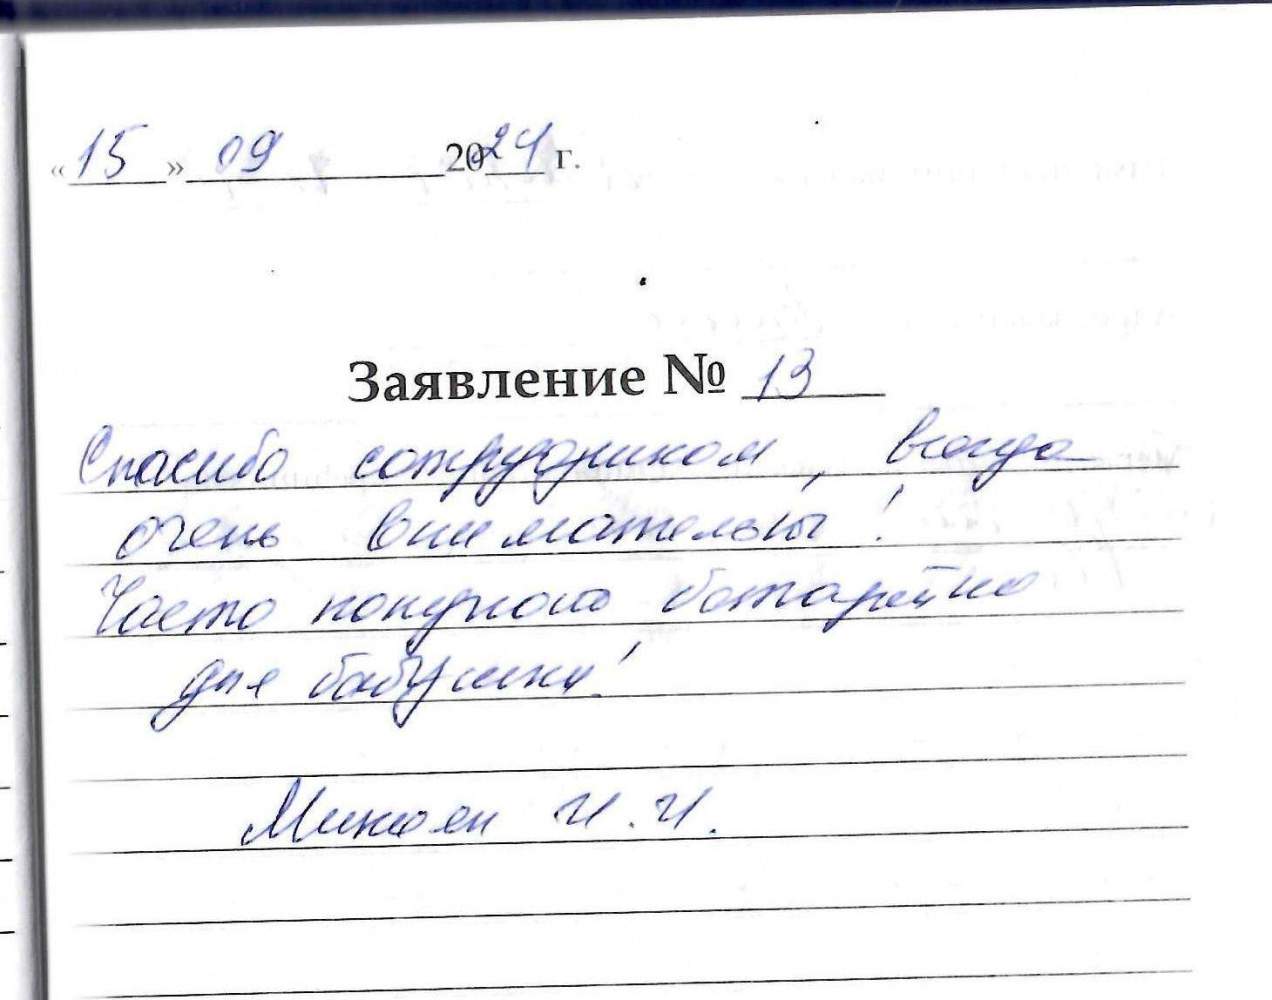 «15» 09 2024 г.
Заявление № 13
Спасибо сотрудником, всегда
очень внимательны!
Часто покупаю батарейки
для бабушки!
Микоян И.И.